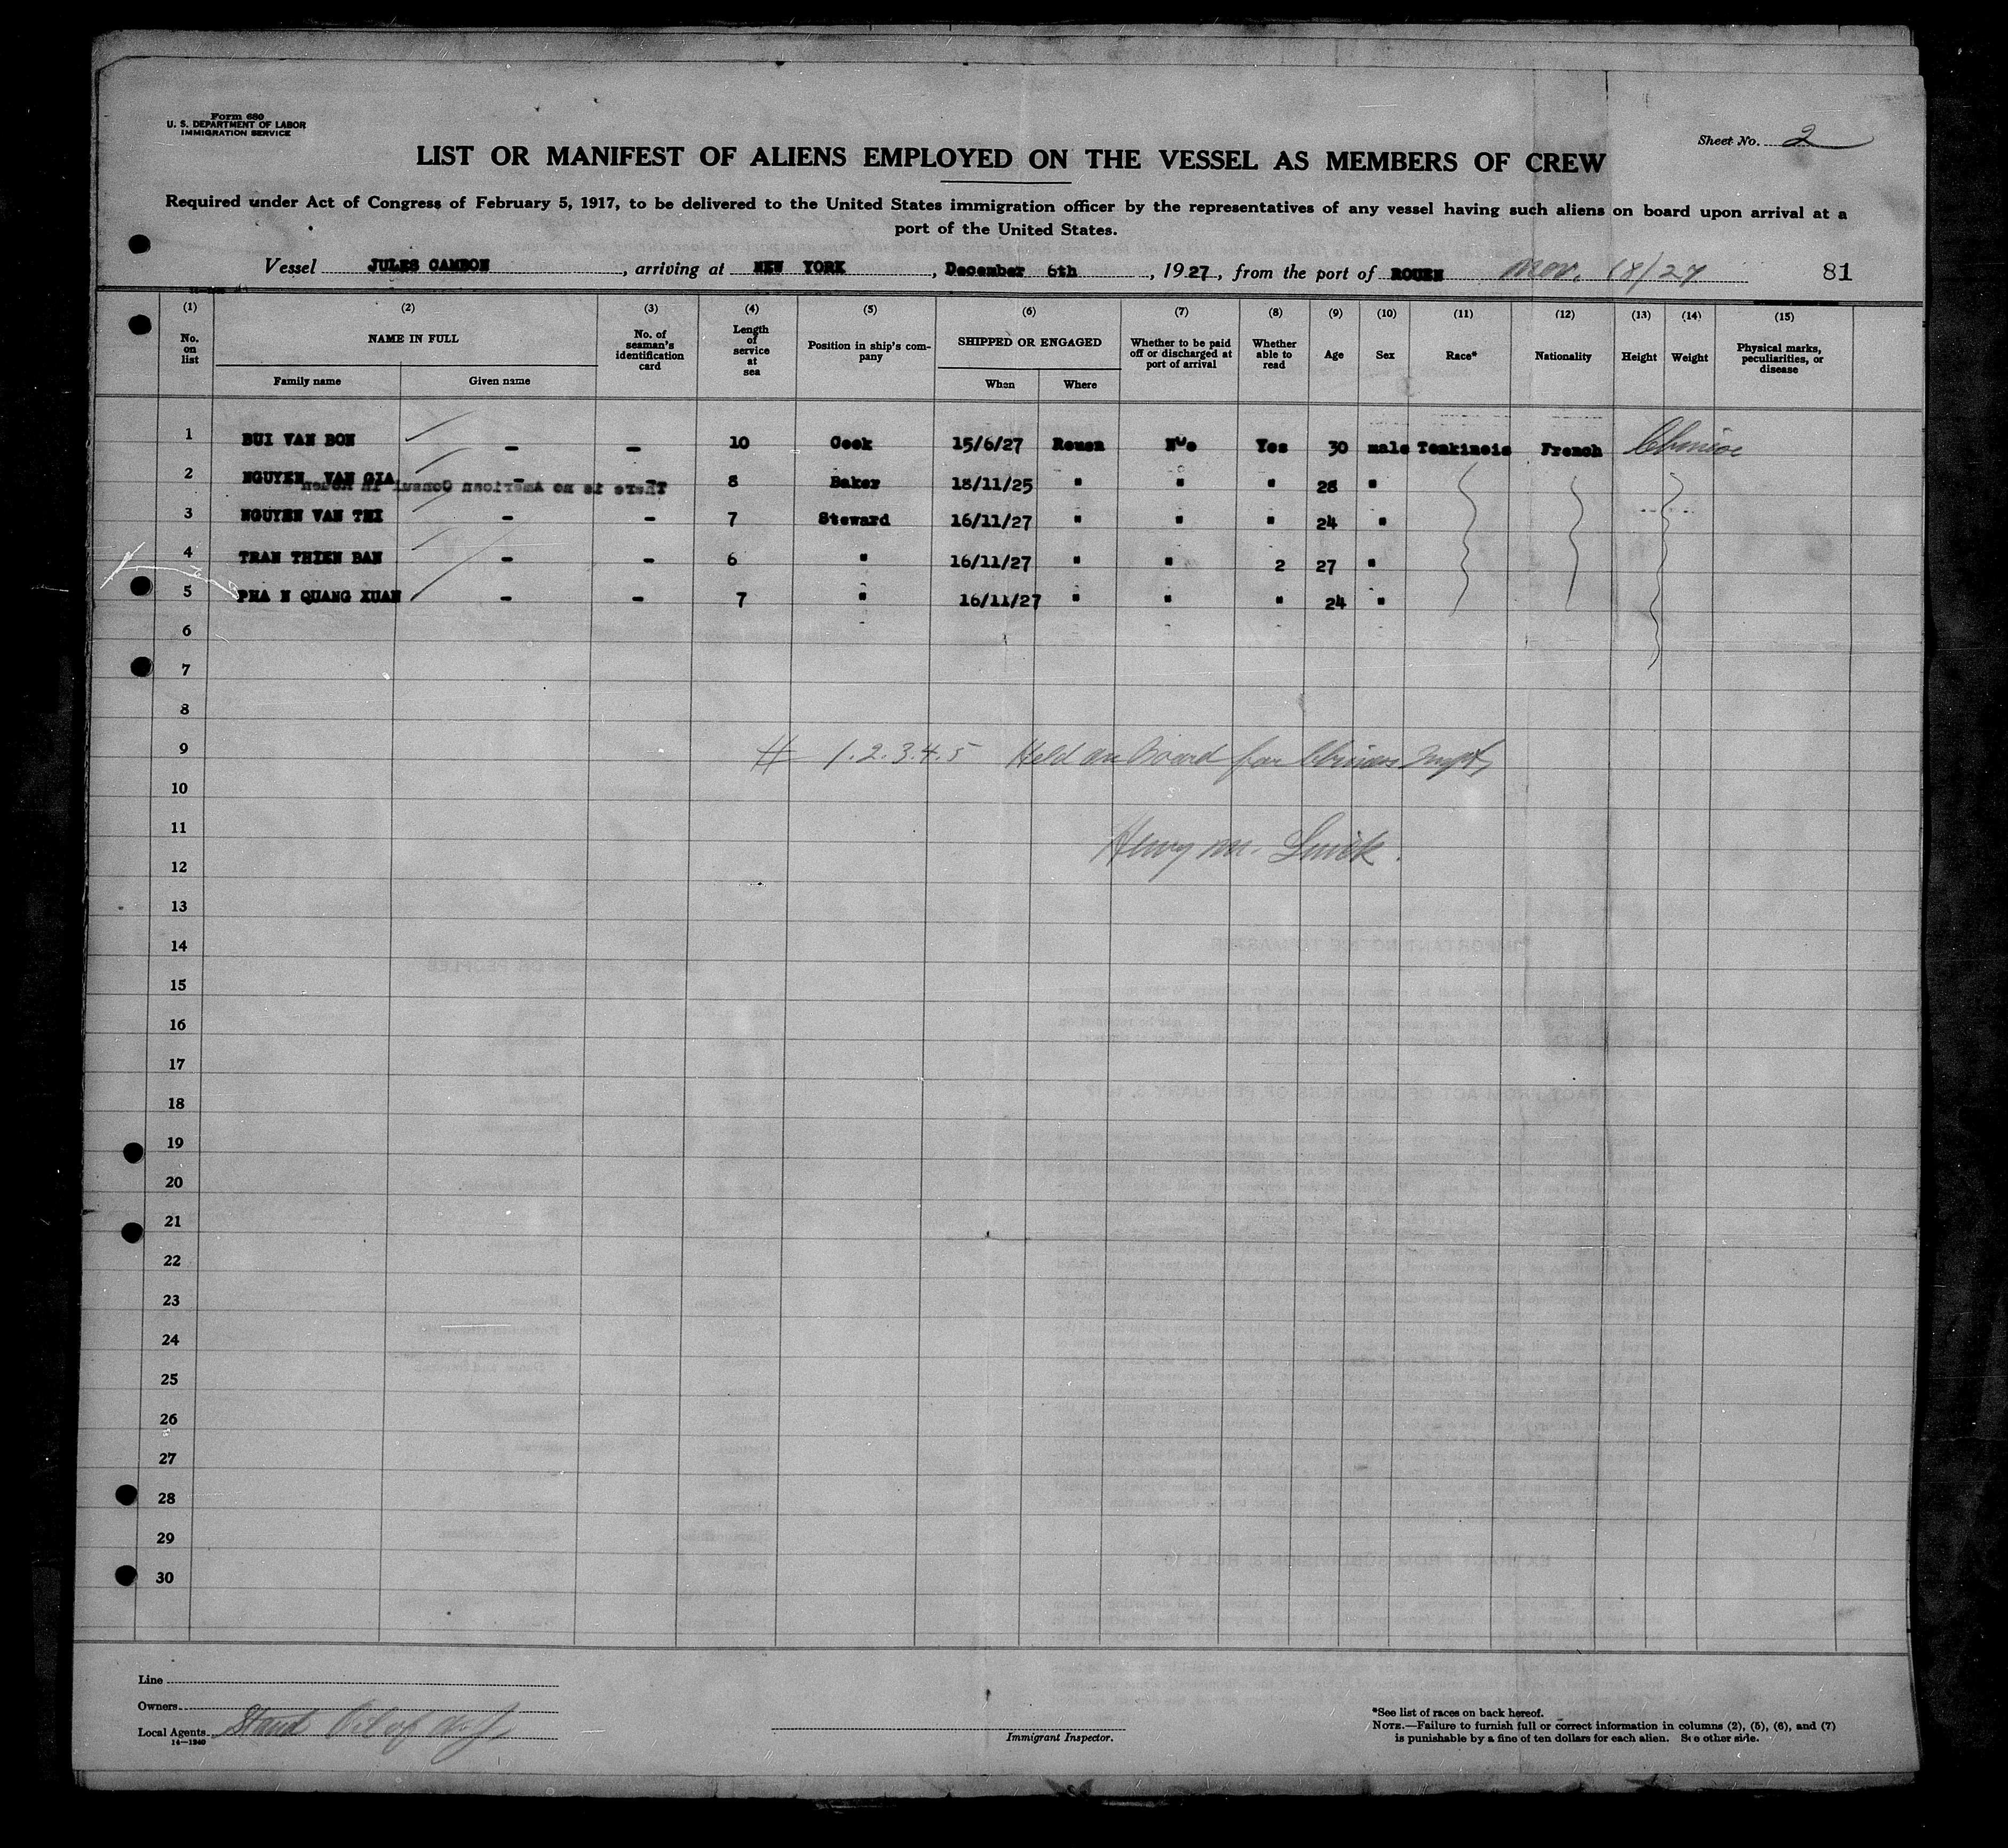 Form 680
U. S. DEPARTMENT OF LABOR
IMMIGRATION SERVICE
Sheet No. 2
LIST OR MANIFEST OF ALIENS EMPLOYED ON THE VESSEL AS MEMBERS OF CREW
Required under Act of Congress of February 5, 1917, to be delivered to the United States immigration officer by the representatives of any vessel having such aliens on board upon arrival at a
port of the United States.
Vessel JULES CAMBON, arriving at NEW YORK, December 6th, 1927, from the port of ROUEN Nov. 18/27 81
(1) (2) (3) (4) (5) (6) (7) (8) (9) (10) (11) (12) (13) (14) (15)
No. on list NAME IN FULL Family name Given name No. of seaman's identification card Length of service at sea Position in ship's company SHIPPED OR ENGAGED When Where Whether to be paid off or discharged at port of arrival Whether able to read Age Sex Race* Nationality Height Weight Physical marks, peculiarities, or disease
1 BUI VAN BON - - 10 Cook 15/6/27 Rouen Yes 30 male Tonkinois French Chinese
2 NGUYEN VAN GIA - - 8 Baker 18/11/25 " " " 28 "
There is no American Consul in Rouen
3 NGUYEN VAN THI - - 7 Steward 16/11/27 " " " 24 "
4 TRAN THIEN BAN - - 6 " 16/11/27 " " 2 27 "
5 PHA N QUANG XUAN - - 7 " 16/11/27 " " " 24 "
6
7
8
9 # 1.2.3.4.5 Held on Board for Chinese Inspt,
10
11
Henry M.
12
13
14
15
16
17
18
19
20
21
22
23
24
25
26
27
28
29
30
Line
Owners
Local Agents Stand Oil of N.J.
14—1940
Immigrant Inspector.
*See list of races on back hereof.
NOTE.—Failure to furnish full or correct information in columns (2), (5), (6), and (7)
is punishable by a fine of ten dollars for each alien. See other side.